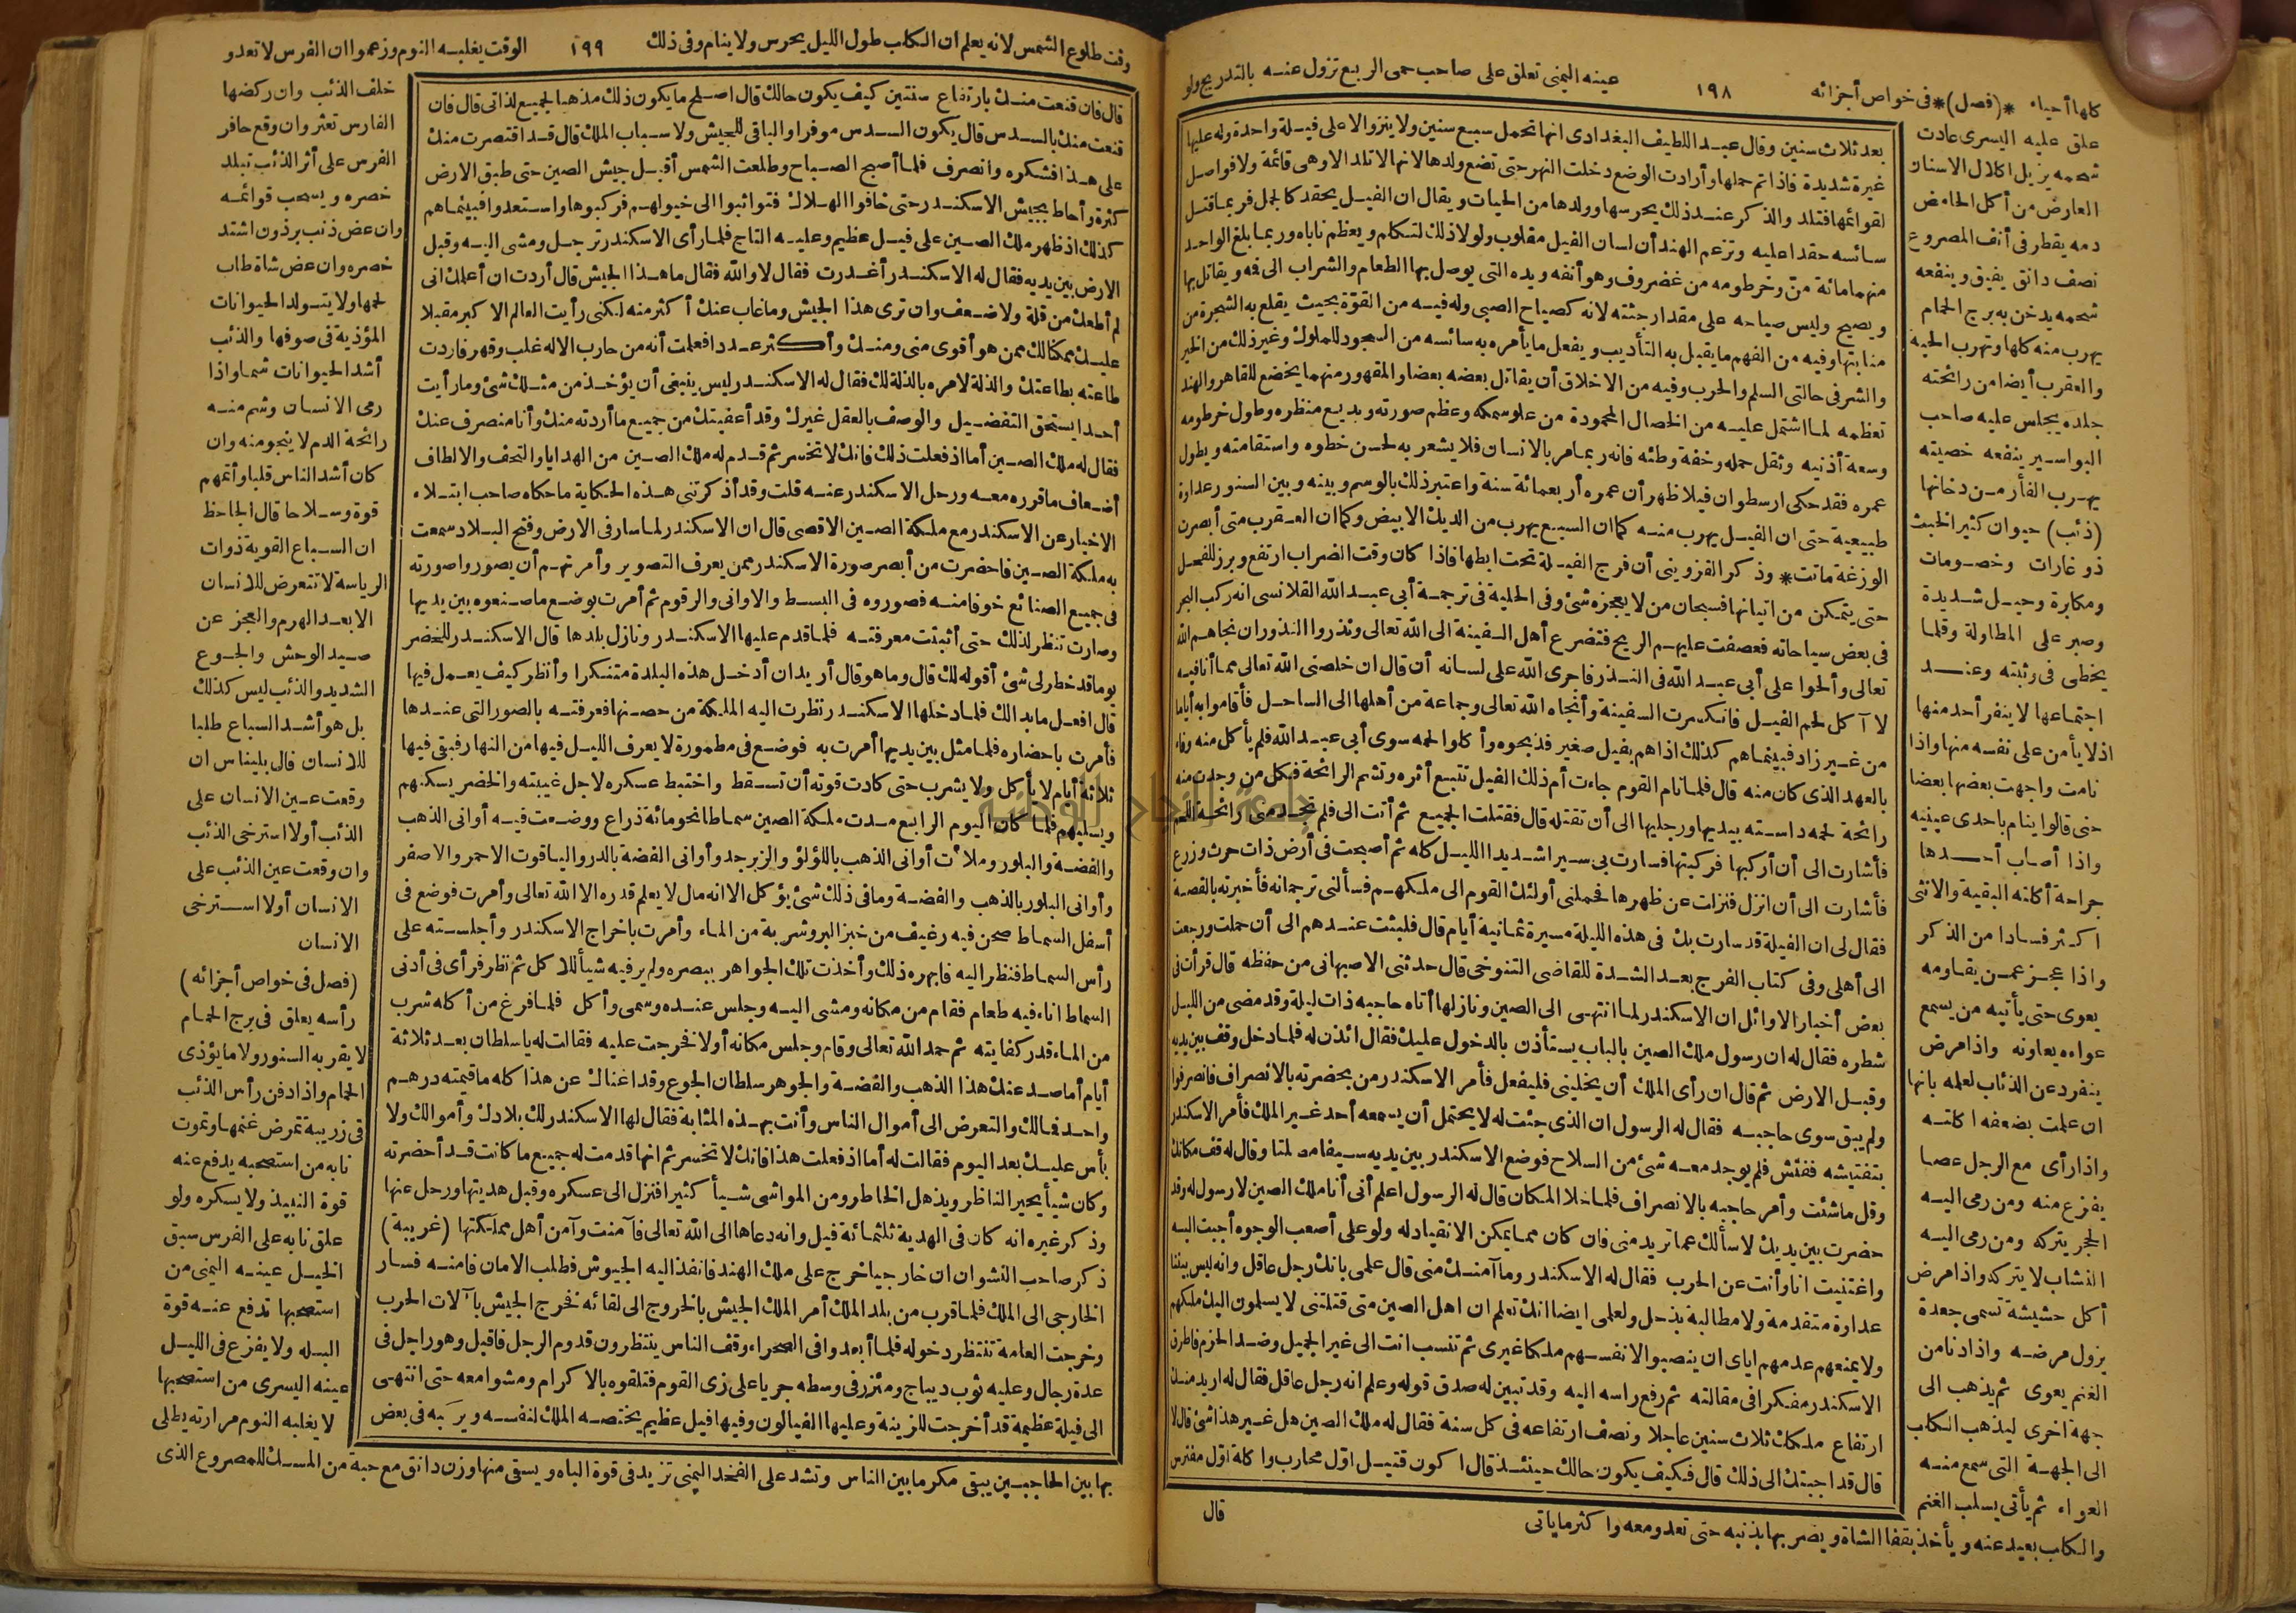 ١٩٨
كلها أحياء *(فصل)* فى خواص أجزائه
عينه اليمنى تعلق على صاحب حمى الربع تزول عنه بالتدريج ولو
علق عليه اليسرى عادت
شحمه يزيل اكلال الاسنان
العارض من أكل الحامض
دمه يقطر فى أنف المصروع
نصف دانق يفيق وينفعه
شحمه يدخن به برج الحمام
يهرب منه كلها وتهرب الحية
والعقرب أيضا من رائحته
جلده يجلس عليه صاحب
البواسير ينفعه خصيته
يهرب الفأر من دخانها
(ذئب) حيوان كثير الخبث
ذو غارات وخصومات
ومكابرة وحيل شديدة
وصبر على المطاولة وقلما
يخطى فى وثبته وعند
اجتماعها لا ينفر أحد منها
اذ لا يأمن على نفسه منها واذا
نامت واجهت بعضها بعضا
حتى قالوا ينام باحدى عينيه
واذا أصاب أحدها
جراحة أكلته البقية والانثى
اكثر فسادا من الذكر
واذا عجز عمن يقاومه
يعوى حتى يأتيه من يسمع
عواءه يعاونه واذا مرض
ينفرد عن الذئاب لعلمه بانها
ان علمت بضعفه اكلته
واذا رأى مع الرجل عصا
يفزع منه ومن رمى اليه
الحجر يتركه ومن رمى اليه
النشاب لا يتركه واذا مرض
أكل حشيشة تسمى جعدة
يزول مرضه واذا دنا من
الغنم يعوى ثم يذهب الى
جهة اخرى ليذهب الكلب
الى الجهة التى سمع منه
العواء ثم يأتى يسلب الغنم
والكلب بعيد عنه ويأخذ بقفا الشاة ويضربها بذنبه حتى تعدو معه واكثر ما ياتى
بعد ثلاث سنين وقال عبد اللطيف البغدادى انها تحمل سبع سنين ولا ينزو الا على فيلة واحدة وله عليها
غيرة شديدة فاذا تم حملها وأرادت الوضع دخلت النهر حتى تضع ولدها لانها لا تلد الا وهى قائمة ولا فواصل
لقوائمها فتلد والذكر عند ذلك يحرسها وولدها من الحيات ويقال ان الفيل يحقد كالجمل فربما قتل
سائسه حقدا عليه وتزعم الهند أن لسان الفيل مقلوب ولولا ذلك لتكلم ويعظم ناباه وربما بلغ الواحد
منهما مائة منّ وخرطومه من غضروف وهو أنفه ويده التى يوصل بها الطعام والشراب الى فه ويقاتل بها
ويصيح وليس صياحه على مقدار جثته لانه كصياح الصبى وله فيه من القوّة بحيث يقلع به الشجرة من
منابتها وفيه من الفهم ما يقبل به التأديب ويفعل ما يأمره به سائسه من السجود للملوك وغير ذلك من الخير
والشر فى حالتى السلم والحرب وفيه من الاخلاق أن يقاتل بعضه بعضا والمقهور منهما يخضع للقاهر والهند
تعظمه لما اشتمل عليه من الخصال المحمودة من علو سمكه وعظم صورته وبديع منظره وطول خرطومه
وسعة أذنيه وثقل حمله وخفة وطئه فانه ربما مر بالانسان فلا يشعر به لحسن خطوه واستقامته ويطول
عمره فقد حكى ارسطو ان فيلا ظهر أن عمره أربعمائة سنة واعتبر ذلك بالوسم وبينه وبين السنور عداوة
طبيعية حتى ان الفيل يهرب منه كما ان السبع يهرب من الديك الابيض وكما ان العقرب متى أبصرت
الوزغة ماتت* وذكر القزوينى أن فرج الفيلة تحت ابطها فاذا كان وقت الضراب ارتفع وبرز للفحل
حتى يتمكن من اتيانها فسبحان من لا يعجزه شئ وفى الحلية فى ترجمة أبى عبد الله القلانسى انه ركب البحر
فى بعض سياحاته فعصفت عليهم الريح فتضرع أهل السفينة الى الله تعالى ونذروا النذور ان نجاهم الله
تعالى وألحوا على أبى عبد الله فى النذر فاجرى الله على لسانه أن قال ان خلصنى الله تعالى مما أنا فيه
لا آكل لحم الفيل فانكسرت السفينة وأنجاه الله تعالى وجماعة من أهلها الى الساحل فأقاموا به أياما
من غير زاد فبينما هم كذلك اذا هم بفيل صغير فذبحوه وأكلوا لحمه سوى أبى عبد الله فلم يأكل منه وفاء
بالعهد الذى كان منه قال فلما نام القوم جاءت أم ذلك الفيل تتبع أثره وتشم الرائحة فكل من وجدت منه
رائحة لحمه داسته بيديها ورجليها الى أن تقتله قال فقتلت الجميع ثم أتت الى فلم تجد منى رائحة اللحم
فأشارت الى أن أركبها فركبتها فسارت بى سيرا شديدا الليل كله ثم أصبحت فى أرض ذات حرث وزرع
فأشارت الى أن انزل فنزلت عن ظهرها فحملنى أولئك القوم الى ملكهم فسألنى ترجمانه فأخبرته بالقصة
فقال لى ان الفيلة قد سارت بك فى هذه الليلة مسيرة ثمانية أيام قال فلبثت عندهم الى أن حملت ورجعت
الى أهلى وفى كتاب الفرج بعد الشدة للقاضى التنوخى قال حدثنى الاصبهانى من حفظه قال قرأت فى
بعض أخبار الاوائل ان الاسكندر لما انتهى الى الصين ونازلها أتاه حاجبه ذات ليلة وقد مضى من الليل
شطره فقال له ان رسول ملك الصين بالباب يستأذن بالدخول عليك فقال ائذن له فلما دخل وقف بين يديه
وقبل الارض ثم قال ان رأى الملك أن يخلينى فليفعل فأمر الاسكندر من بحضرته بالانصراف فانصرفوا
ولم يبق سوى حاجبه فقال له الرسول ان الذى جئت له لا يحتمل أن يسمعه أحد غير الملك فأمر الاسكندر
بتفتيشه ففتش فلم يوجد معه شئ من السلاح فوضع الاسكندر بين يديه سيفا مصلتا وقال له قف مكانك
وقل ما شئت وأمر حاجبه بالانصراف فلما خلا المكان قال له الرسول اعلم أنى أنا ملك الصين لا رسول له وقد
حضرت بين يديك لاسألك عما تريد منى فان كان مما يمكن الانقياد له ولو على أصعب الوجوه أجبت اليه
واغتنيت انا وأنت عن الحرب فقال له الاسكندر وما آمنك منى قال علمى بانك رجل عاقل وانه ليس بيننا
عداوة متقدمة ولا مطالبة بذحل ولعلمى ايضا انك تعلم ان اهل الصين متى قتلتنى لا يسلمون اليك ملكهم
ولا يمنعهم عدمهم اياى ان ينصبوا لانفسهم ملكا غيرى ثم تنسب انت الى غير الجميل وضد الحزم فاطرق
الاسكندر مفكرا فى مقالته ثم رفع راسه اليه وقد تبين له صدق قوله وعلم انه رجل عاقل فقال له اريد منك
ارتفاع ملكك ثلاث سنين عاجلا ونصف ارتفاعه فى كل سنة فقال له ملك الصين هل غير هذا شئ قال لا
قال قد اجبتك الى ذلك قال فكيف يكون حالك حينئذ قال اكون قتيل اول محارب واكلة اول مفترس
قال
١٩٩
وقت طلوع الشمس لانه يعلم ان الكلب طول الليل يحرس ولا ينام وفى ذلك
الوقت يغلبه النوم وزعموا ان الفرس لا تعدو
خلف الذئب وان ركضها
الفارس تعثر وان وقع حافر
الفرس على أثر الذئب تبلد
خصره ويسحب قوائمه
وان عض ذنب برذون اشتد
خصره وان عض شاة طاب
لحمها ولا يتولد الحيوانات
المؤذية فى صوفها والذئب
أشد الحيوانات شما واذا
رمى الانسان وشم منه
رائحة الدم لا ينجو منه وان
كان أشد الناس قلبا وأتمهم
قوة وسلاحا قال الجاحظ
ان السباع القوية ذوات
الرياسة لا تتعرض للانسان
الا بعد الهرم والعجز عن
صيد الوحش والجوع
الشديد والذئب ليس كذلك
بل هو أشد السباع طلبا
للانسان قال بليناس ان
وقعت عين الانسان على
الذئب أولا استرخى الذئب
وان وقعت عين الذئب على
الانسان أولا استرخى
الانسان
(فصل فى خواص أجزائه)
رأسه يعلق فى برج الحمام
لا يقربه السنور ولا ما يؤذى
الحمام واذا دفن رأس الذئب
فى زريبة تمرض غنمها وتموت
نابه من استصحبه يدفع عنه
قوة النبيذ ولا يسكره ولو
علق نابه على الفرس سبق
الخيل عينه اليمنى من
استصحبها تدفع عنه قوة
البله ولا يفزع فى الليل
عينه اليسرى من استصحبها
لا يغلبه النوم مرارته يطلى
بها بين الحاجبين يبقى مكرما بين الناس وتشد على الفخذ اليمنى تزيد فى قوة الباه ويسقى منها وزن دانق مع حبة من المسك للمصروع الذى
قال فان قنعت منك بارتفاع سنتين كيف يكون حالك قال اصلح ما يكون ذلك مذهبا لجميع لذاتى قال فان
قنعت منك بالسدس قال يكون السدس موفرا والباقى للجيش ولاسباب الملك قال قد اقتصرت منك
على هذا فشكره وانصرف فلما أصبح الصباح وطلعت الشمس أقبل جيش الصين حتى طبق الارض
كثرة وأحاط بجيش الاسكندر حتى خافوا الهلاك فتواثبوا الى خيولهم فركبوها واستعدوا فبينما هم
كذلك اذ ظهر ملك الصين على فيل عظيم وعليه التاج فلما رأى الاسكندر ترجل ومشى اليه وقبل
الارض بين يديه فقال له الاسكندر أغدرت فقال لا والله فقال ما هذا الجيش قال أردت ان أعلمك انى
لم أطعك من قلة ولا ضعف وان ترى هذا الجيش وما غاب عنك أكثر منه لكنى رأيت العالم الاكبر مقبلا
عليك ممكنا لك ممن هو أقوى منى ومنك وأكثر عددا فعلمت أنه من حارب الاله غلب وقهر فاردت
طاعته بطاعتك والذلة لامره بالذلة لك فقال له الاسكندر ليس ينبغى أن يؤخذ من مثلك شئ وما رأيت
أحدا يستحق التفضيل والوصف بالعقل غيرك وقد أعفيتك من جميع ما أردته منك وأنا منصرف عنك
فقال له ملك الصين أما اذ فعلت ذلك فانك لا تخسر ثم قدم له ملك الصين من الهدايا والتحف والالطاف
أضعاف ما قرره معه ورحل الاسكندر عنه قلت وقد أذكرتنى هذه الحكاية ما حكاه صاحب ابتلاء
الاخيار عن الاسكندر مع ملكة الصين الاقصى قال ان الاسكندر لما سار فى الارض وفتح البلاد سمعت
به ملكة الصين فاحضرت من أبصر صورة الاسكندر ممن يعرف التصوير وأمرتهم أن يصوروا صورته
فى جميع الصنائع خوفا منه فصوروه فى البسط والاوانى والرقوم ثم أمرت بوضع ما صنعوه بين يديها
وصارت تنظر لذلك حتى أثبتت معرفته فلما قدم عليها الاسكندر ونازل بلدها قال الاسكندر للخضر
يوما قد خطر لى شئ أقوله لك قال وما هو قال أريد ان أدخل هذه البلدة متنكرا وأنظر كيف يعمل فيها
قال افعل ما بدا لك فلما دخلها الاسكندر نظرت اليه الملكة من حصنها فعرفته بالصور التى عندها
فأمرت باحضاره فلما مثل بين يديها أمرت به فوضع فى مطمورة لا يعرف الليل فيها من النهار فبقى فيها
ثلاثة أيام لا يأكل ولا يشرب حتى كادت قوته أن تسقط واختبط عسكره لاجل غيبته والخضر يسكنهم
ويسليهم فلما كان اليوم الرابع مدت ملكة الصين سماطا نحو مائة ذراع ووضعت فيه أوانى الذهب
والفضة والبلور وملأت أوانى الذهب باللؤلؤ والزبرجد وأوانى الفضة بالدر والياقوت الاحمر والاصفر
وأوانى البلور بالذهب والفضة وما فى ذلك شئ يؤكل الا انه مال لا يعلم قدره الا الله تعالى وأمرت فوضع فى
أسفل السماط صحن فيه رغيف من خبز البر وشربة من الماء وأمرت باخراج الاسكندر وأجلسته على
رأس السماط فنظر اليه فابهره ذلك وأخذت تلك الجواهر ببصره ولم ير فيه شيأ للاكل ثم نظر فرأى فى أدنى
السماط اناء فيه طعام فقام من مكانه ومشى اليه وجلس عنده وسمى وأكل فلما فرغ من أكله شرب
من الماء قدر كفايته ثم حمد الله تعالى وقام وجلس مكانه أولا فخرجت عليه فقالت له يا سلطان بعد ثلاثة
أيام أما صد عنك هذا الذهب والفضة والجوهر سلطان الجوع وقد اغناك عن هذا كله ما قيمته درهم
واحد فمالك والتعرض الى أموال الناس وأنت بهذه المثابة فقال لها الاسكندر لك بلادك وأموالك ولا
بأس عليك بعد اليوم فقالت له أما اذ فعلت هذا فانك لا تخسر ثم انها قدمت له جميع ما كانت قد أحضرته
وكان شيأ يحير الناظر ويذهل الخاطر ومن المواشى شيأ كثيرا فنزل الى عسكره وقبل هديتها ورحل عنها
وذكر غيره انه كان فى الهدية ثلثمائة فيل وانه دعاها الى الله تعالى فآمنت وآمن أهل مملكتها (غريبة)
ذكر صاحب النشوان ان خارجيا خرج على ملك الهند فانفذ اليه الجيوش فطلب الامان فامنه فسار
الخارجى الى الملك فلما قرب من بلد الملك أمر الملك الجيش بالخروج الى لقائه فخرج الجيش بآلات الحرب
وخرجت العامة تنتظر دخوله فلما أبعدوا فى الصحراء وقف الناس ينتظرون قدوم الرجل فاقبل وهو راجل فى
عدة رجال وعليه ثوب ديباج ومئزر فى وسطه جريا على زى القوم فتلقوه بالاكرام ومشوا معه حتى انتهى
الى فيلة عظيمة قد أخرجت للزينة وعليها الفيالون وفيها فيل عظيم يختصه الملك لنفسه ويركبه فى بعض
جامعة النجاح الوطنية